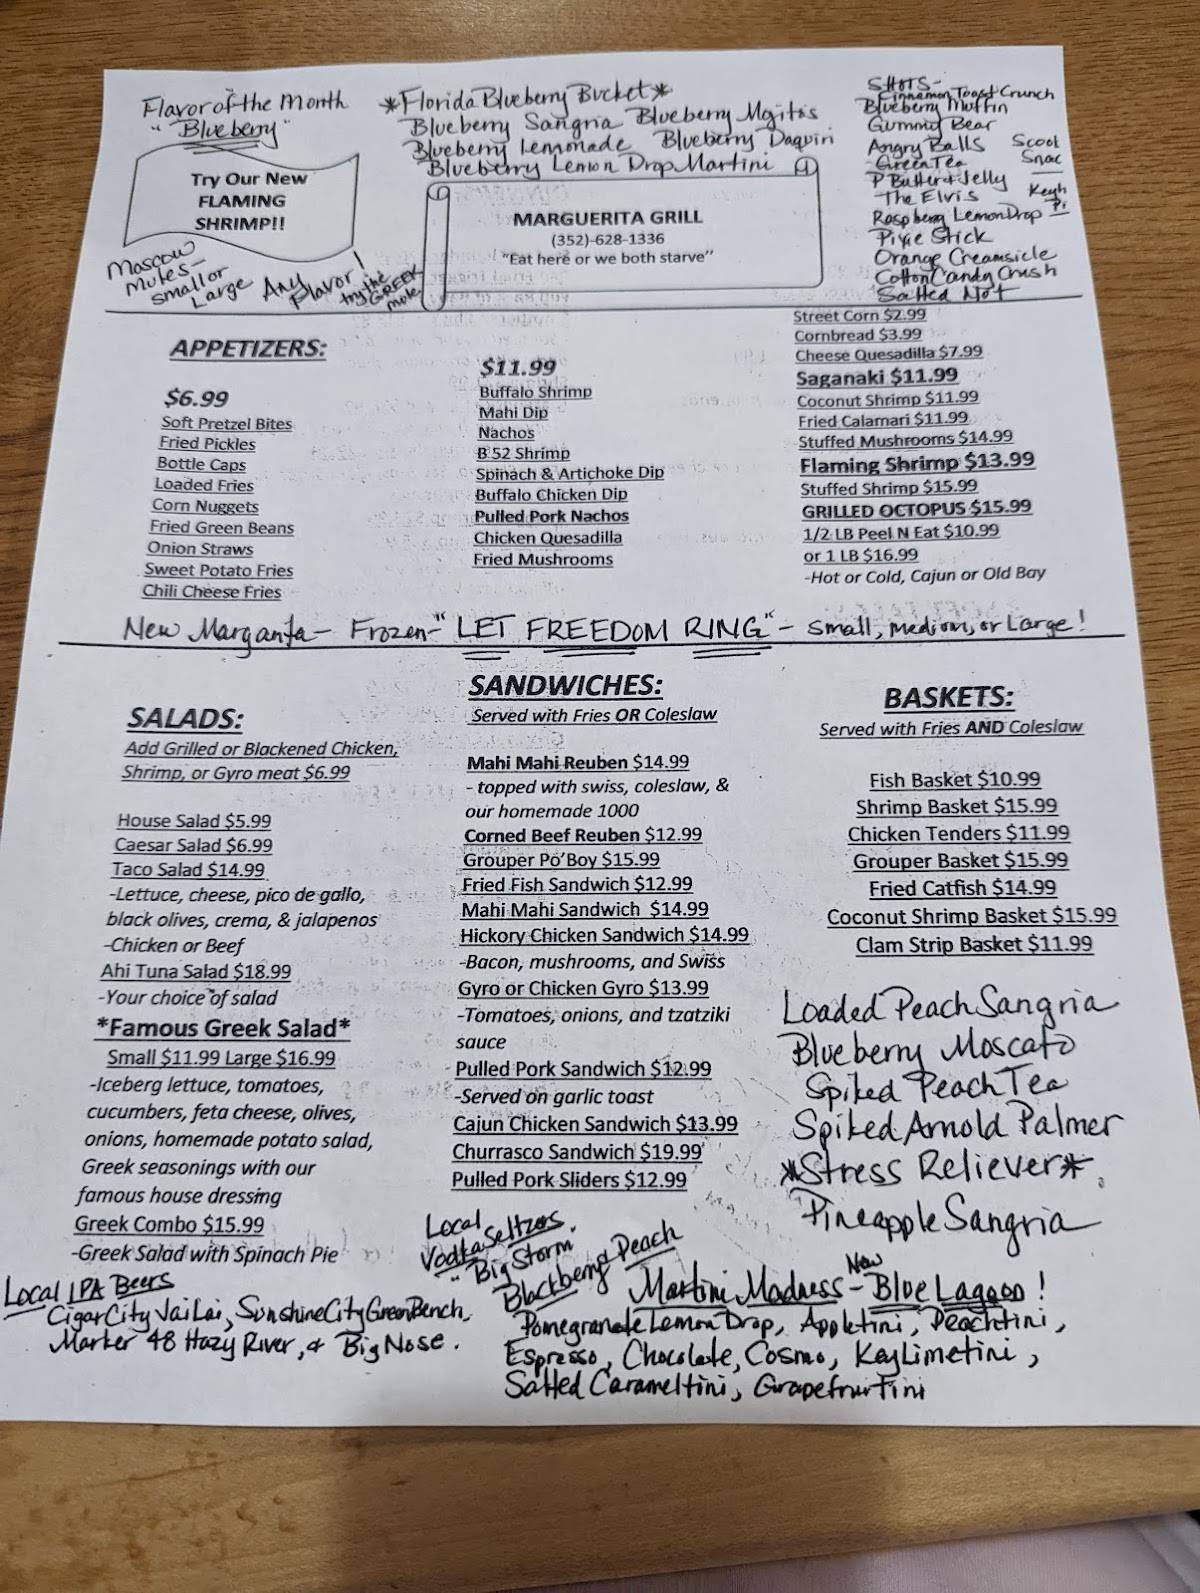 Flavor of the Month
"Blueberry"
Try Our New
FLAMING
SHRIMP!!
Moscow
Mules-
small or
Large
Any
Flavor!
try the
GREEK
mule
*Florida Blueberry Bucket*
Blueberry Sangria Blueberry Mojitos
Blueberry Lemonade Blueberry Daquiri
Blueberry Lemon Drop Martini
MARGUERITA GRILL
(352)-628-1336
"Eat here or we both starve"
SHOTS-
Cinnamon Toast Crunch
Blueberry Muffin
Gummy Bear
Angry Balls
Green Tea
P Butter & Jelly
The Elvis
Raspberry Lemon Drop
Pixie Stick
Orange Creamsicle
Cotton Candy Crush
Salted Nut
Scool
Snac
APPETIZERS:
$6.99
Soft Pretzel Bites
Fried Pickles
Bottle Caps
Loaded Fries
Corn Nuggets
Fried Green Beans
Onion Straws
Sweet Potato Fries
Chili Cheese Fries
$11.99
Buffalo Shrimp
Mahi Dip
Nachos
B 52 Shrimp
Spinach & Artichoke Dip
Buffalo Chicken Dip
Pulled Pork Nachos
Chicken Quesadilla
Fried Mushrooms
Street Corn $2.99
Cornbread $3.99
Cheese Quesadilla $7.99
Saganaki $11.99
Coconut Shrimp $11.99
Fried Calamari $11.99
Stuffed Mushrooms $14.99
Flaming Shrimp $13.99
Stuffed Shrimp $15.99
GRILLED OCTOPUS $15.99
1/2 LB Peel N Eat $10.99
or 1 LB $16.99
-Hot or Cold, Cajun or Old Bay
New Margarita- Frozen- "LET FREEDOM RING" - small, medium, or Large!
SALADS:
Add Grilled or Blackened Chicken,
Shrimp, or Gyro meat $6.99
House Salad $5.99
Caesar Salad $6.99
Taco Salad $14.99
-Lettuce, cheese, pico de gallo,
black olives, crema, & jalapenos
-Chicken or Beef
Ahi Tuna Salad $18.99
-Your choice of salad
*Famous Greek Salad*
Small $11.99 Large $16.99
-Iceberg lettuce, tomatoes,
cucumbers, feta cheese, olives,
onions, homemade potato salad,
Greek seasonings with our
famous house dressing
Greek Combo $15.99
-Greek Salad with Spinach Pie
SANDWICHES:
Served with Fries OR Coleslaw
Mahi Mahi Reuben $14.99
- topped with swiss, coleslaw, &
our homemade 1000
Corned Beef Reuben $12.99
Grouper Po'Boy $15.99
Fried Fish Sandwich $12.99
Mahi Mahi Sandwich $14.99
Hickory Chicken Sandwich $14.99
-Bacon, mushrooms, and Swiss
Gyro or Chicken Gyro $13.99
-Tomatoes, onions, and tzatziki
sauce
Pulled Pork Sandwich $12.99
-Served on garlic toast
Cajun Chicken Sandwich $13.99
Churrasco Sandwich $19.99
Pulled Pork Sliders $12.99
BASKETS:
Served with Fries AND Coleslaw
Fish Basket $10.99
Shrimp Basket $15.99
Chicken Tenders $11.99
Grouper Basket $15.99
Fried Catfish $14.99
Coconut Shrimp Basket $15.99
Clam Strip Basket $11.99
Loaded Peach Sangria
Blueberry Moscato
Spiked Peach Tea
Spiked Arnold Palmer
*Stress Reliever*
Pineapple Sangria
Local IPA Beers
Cigar City Jai Lai, Sunshine City Green Bench,
Marker 48 Hazy River, & Big Nose.
Local
Vodka Seltzers
"Big Storm
Blackberry Peach
Martini Madness - New Blue Lagoon!
Pomegranate Lemon Drop, Appletini, Peachtini,
Espresso, Chocolate, Cosmo, Key Limetini,
Salted Carameltini, Grapefruitini